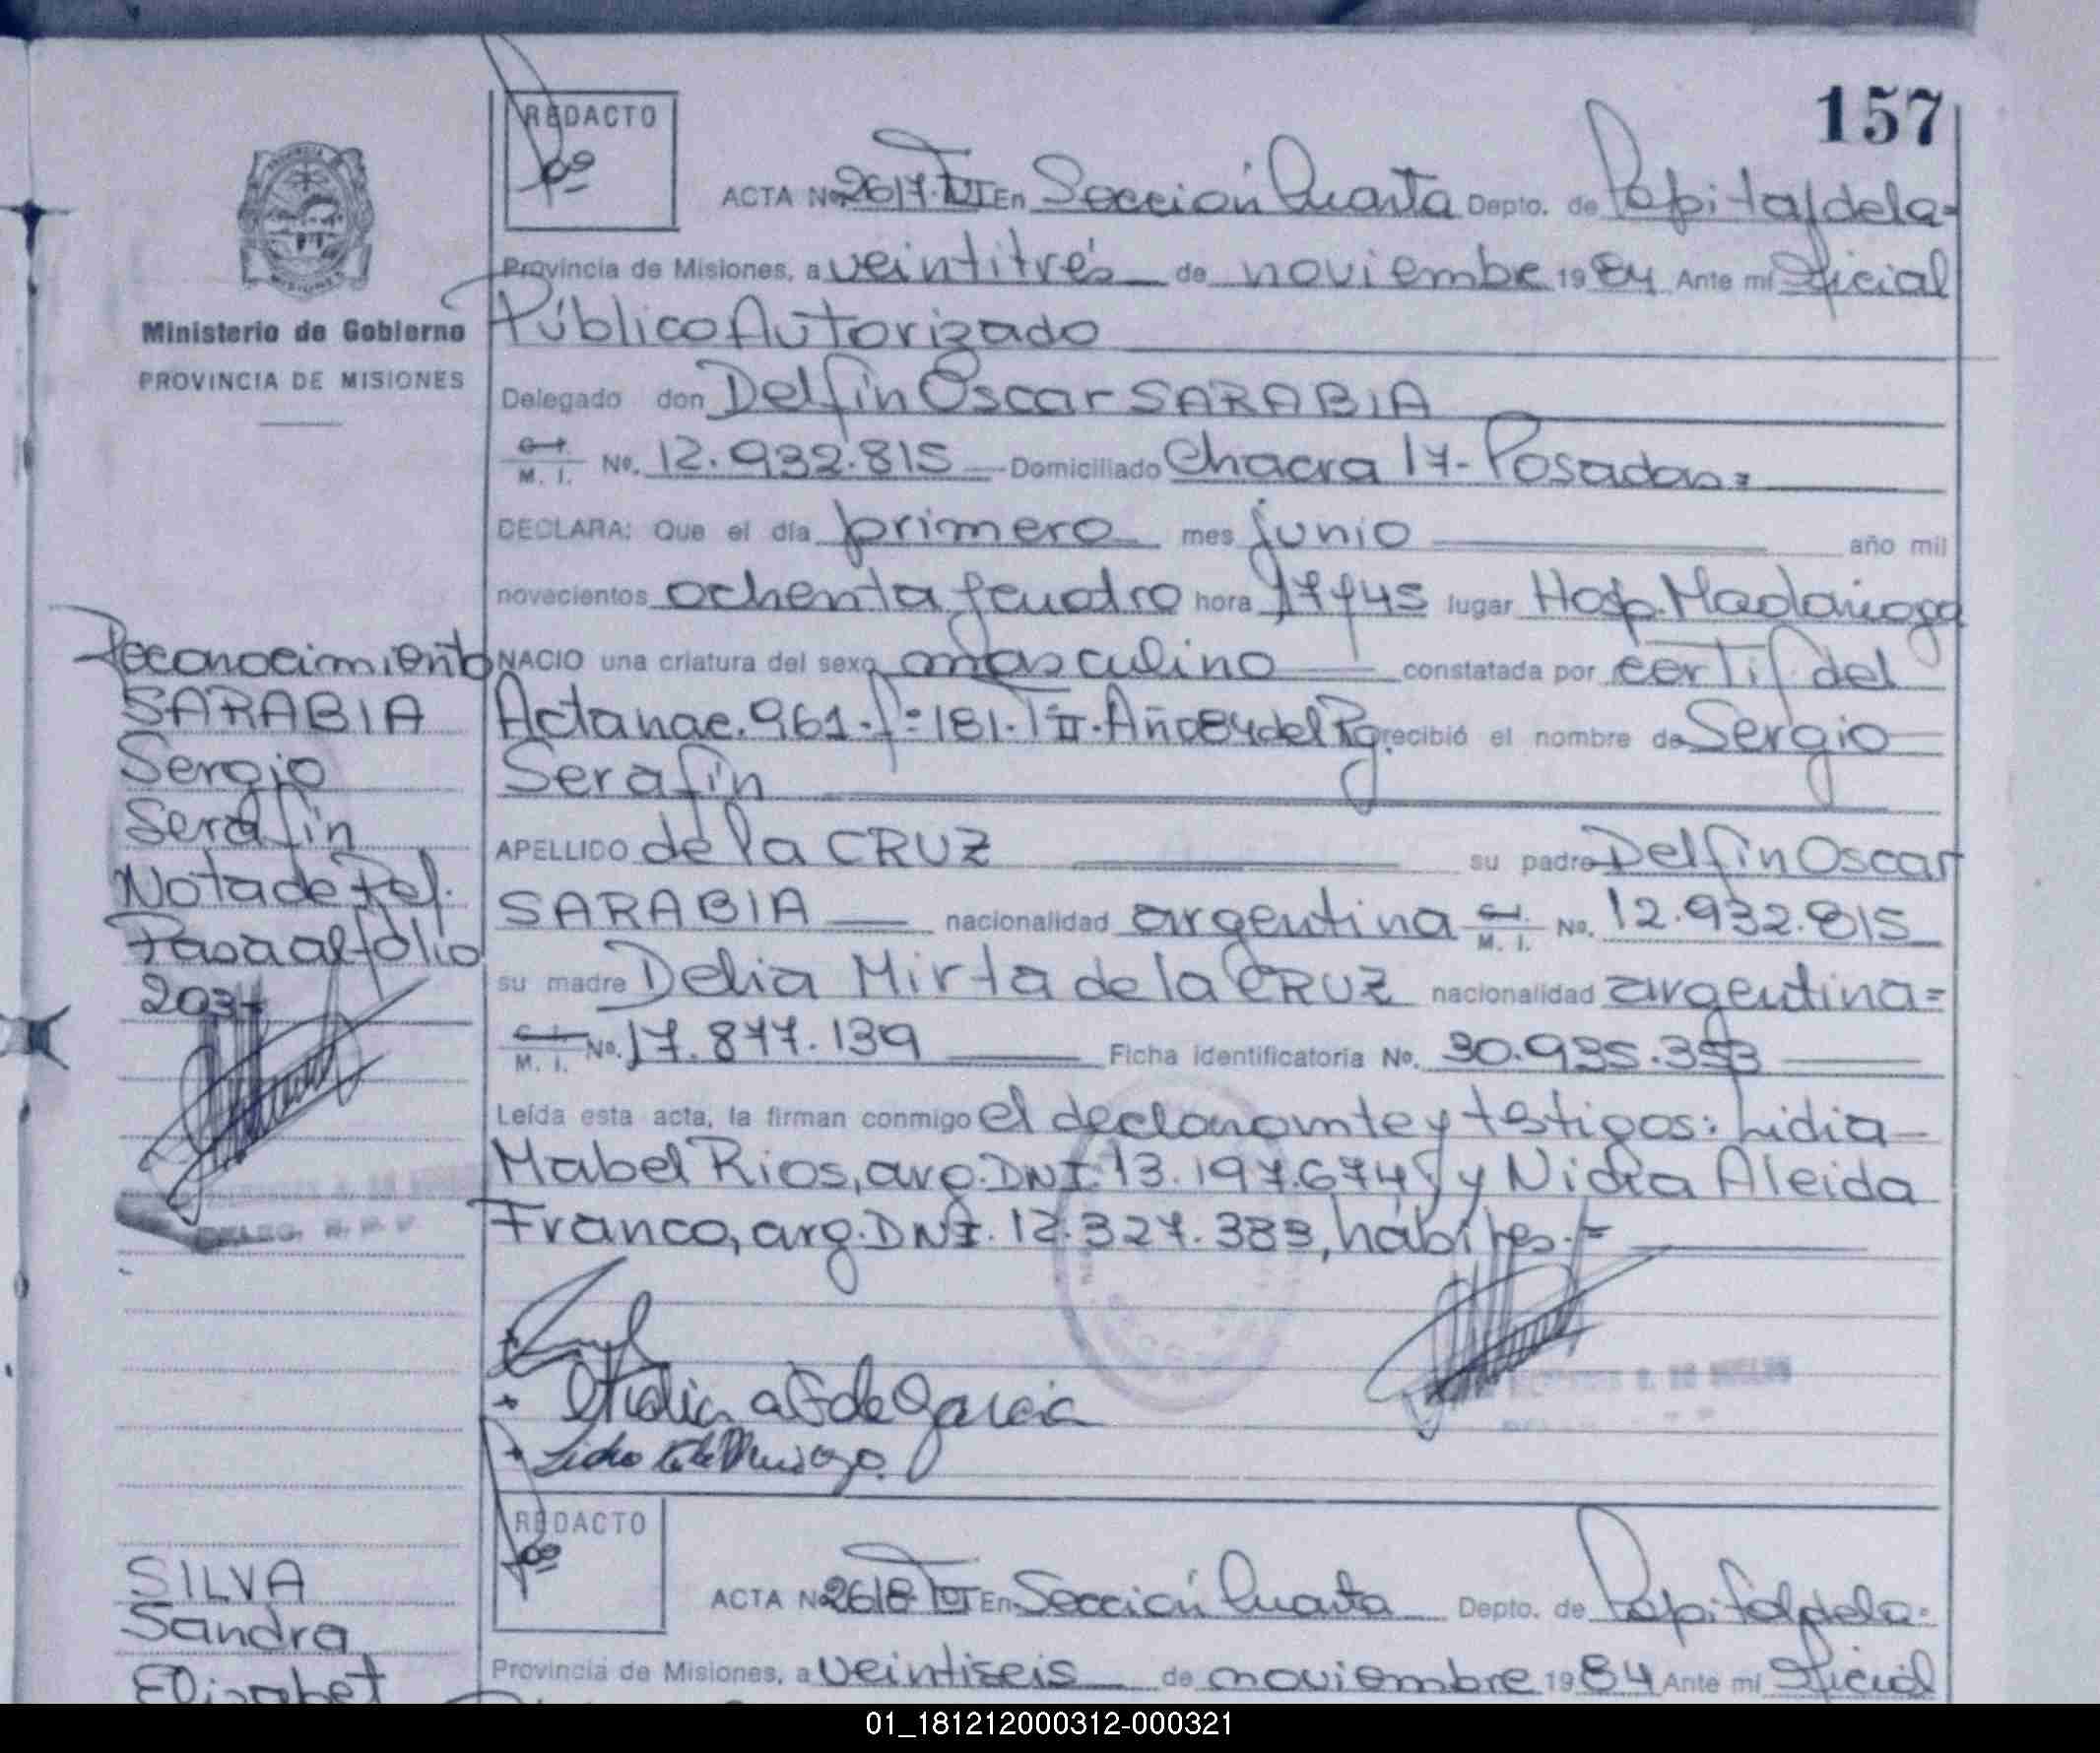 157
REDACTO
ACTA No 2617. TVI En Sección Cuarta Depto. de Capital de la=
Provincia de Misiones, a veintitrés de noviembre 1984 Ante mí Oficial
Ministerio de Gobierno
PROVINCIA DE MISIONES
Público Autorizado
Delegado don Delfín Oscar SARABIA
C. I.
M. I. No. 12.932.815 Domiciliado Chacra 17- Posadas=
DECLARA: Que el día primero mes junio año mil
novecientos ochenta y cuatro hora 17y45 lugar Hosp. Madariaga
NACIO una criatura del sexo masculino constatada por certif. del
Acta nac. 961-fº 181. Tº II. Año 84 del Rg. recibió el nombre de Sergio
Serafín
APELLIDO de la CRUZ su padre Delfín Oscar
SARABIA nacionalidad argentina C. I. M. I. No. 12.932.815
su madre Delia Mirta de la CRUZ nacionalidad argentina=
C. I. M. I. No. 17.877.139 Ficha identificatoria No. 30.935.353
Leída esta acta, la firman conmigo el declarante y testigos: Lidia
Mabel Rios, arg. DNI. 13.197.674 y Nidia Aleida
Franco, arg. DNI. 12.327.383, hábiles.-
Reconocimiento
SARABIA
Sergio
Serafín
Nota de Ref.
Pasa al folio
203-
REDACTO
ACTA No 2618 En Sección Cuarta Depto. de Capital de la=
Provincia de Misiones, a veintiseis de noviembre 1984 Ante mí Oficial
SILVA
Sandra
Elizabet
01_181212000312-000321